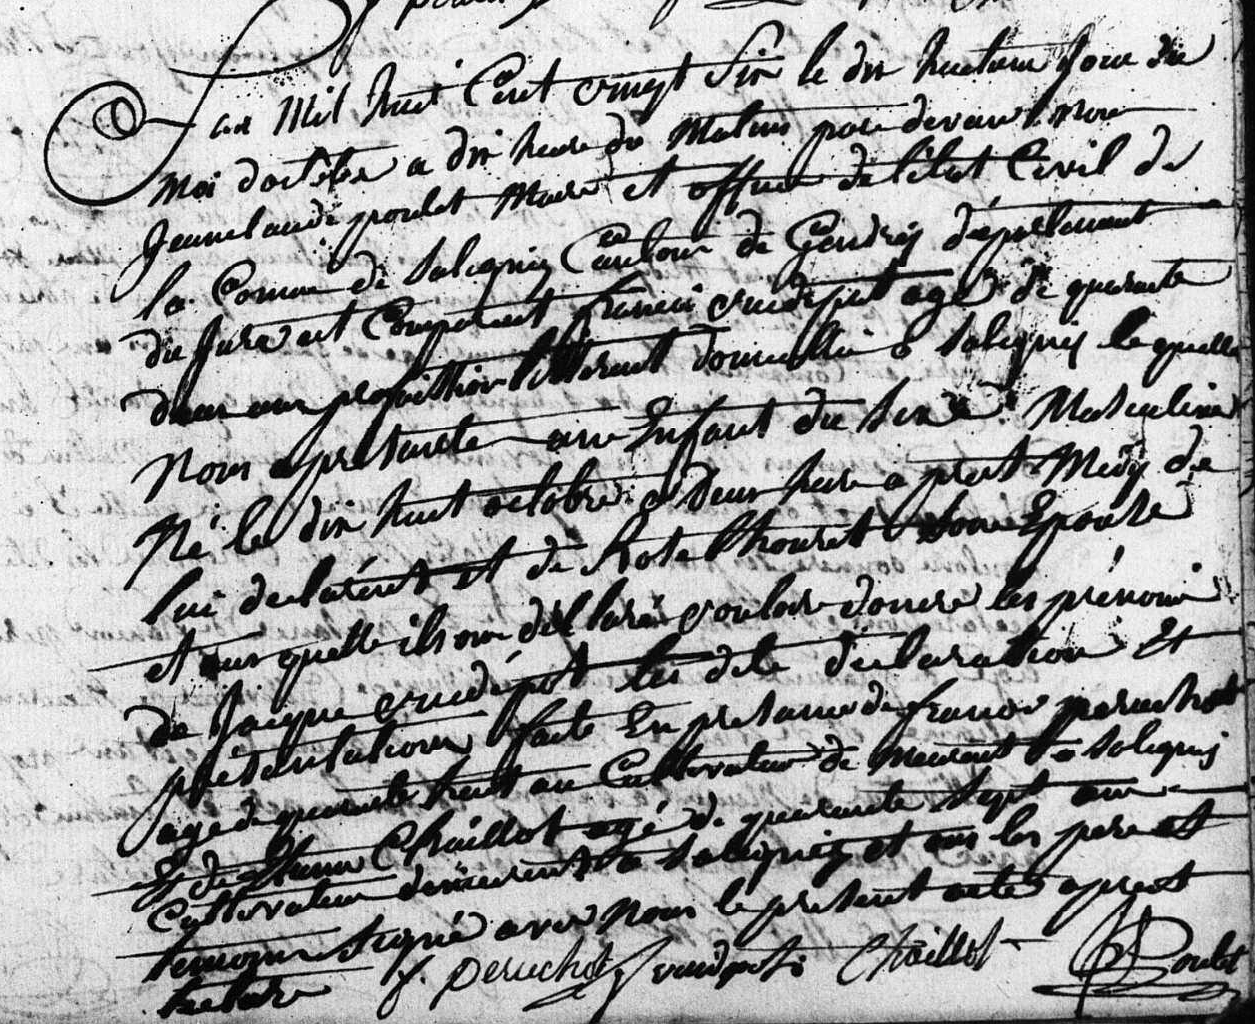 Lan Mil huit Cent vingt Six le dix huitieme Jour du
Moi d'octobre a dix heure du Matin par devant nous
Jeanclaude poulet Maire et officier de l'état Civil de
la Comune de Saligney Canton de Gendrey département
du Jura est Comparut francoi vuidepot agé de quarante
deux ans domicillié a Saligney lequelle
Nous a présanté un Enfant du Sexe Masculine
Né le dix huit octobre a deux heure apret Midy de
lui declarent et de Rose son Epouse
et auquelle ils on déllaré vouloir donner les prénoms
de Jacque vuidépot les dite déclaration Et
présentations faite En présance de francois peruchot
agé de quarante huit an Cultivateur demeurant a Saligney
Et de Chaillot agé de quarante Sept ans
Cultivateur demeurent a Saligney et on les pere et
temoins Signé avec Nous le présent acte apret
lecture
f. peruchot f vuidepot Chaillot Poulet